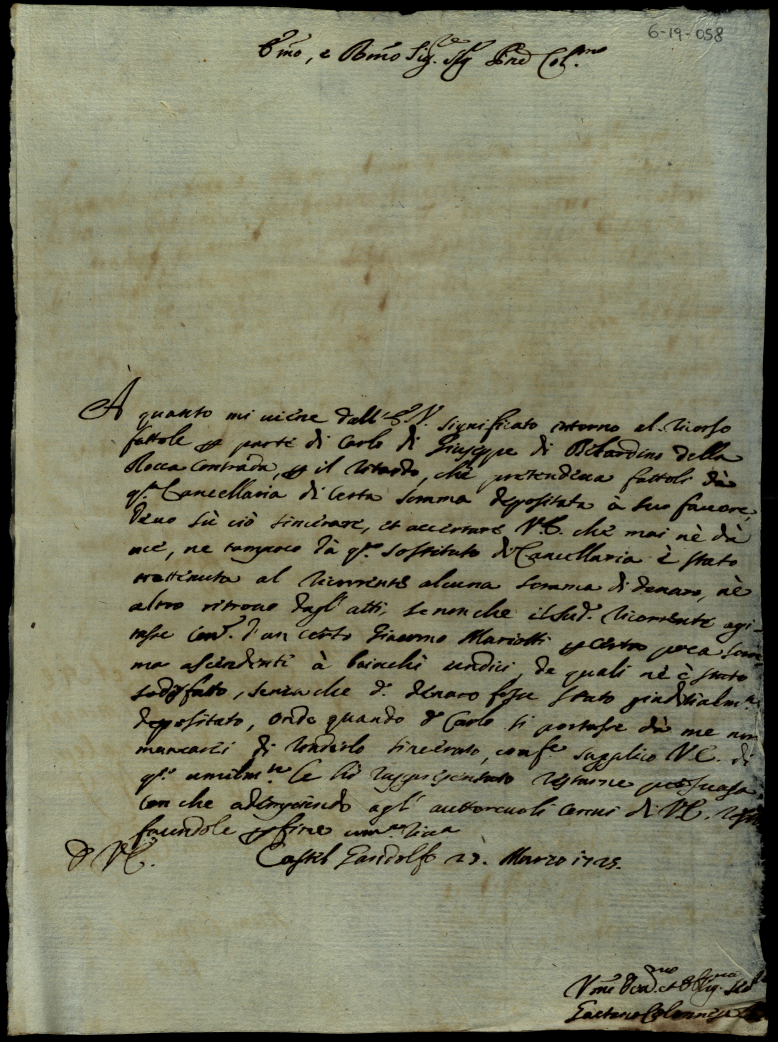 6-19-058
E.mo, e R.mo Sig.re Sig.r P.ne Col.mo
À quanto mi viene dall'E.V. significato intorno al ricorso
fattole per parte di Carlo di Giuseppe di Belardino della
Rocca Contrada, per il ritardo, che pretendeva fattoli da
q.a Cancellaria di certa somma depositata à suo favore,
devo sù ciò sincerare, et accertare V.E. che mai nè da
me, ne tampoco da q.o sostituto di Cancellaria è stato
trattenuta al ricorrente alcuna somma di denaro, nè
altro ritrovo dagl'atti, se non che il sud.o ricorrente agi-
tasse con.o d'un certo Giacomo Mariotti per certa poca som-
ma ascendenti à baiochi undici, de quali ne è stato
sodisfato, senza che d.o denaro fosse stato giuditialm.te
depositato, onde quando d.o Carlo si portasse da me non
mancarei di renderlo sincerato, conf.e supplico V.E. di
q.o umilm.te Le hò rappresentato restarne persuasa
con che adempiendo agl'autorevoli cenni di V.E. resto
facendole per fine um.ma riv.a
D V.E. Castel Gandolfo 23. Marzo 1725.
V.mo Dev.mo et Obblig.mo Ser.
Gaetano Colonnesi